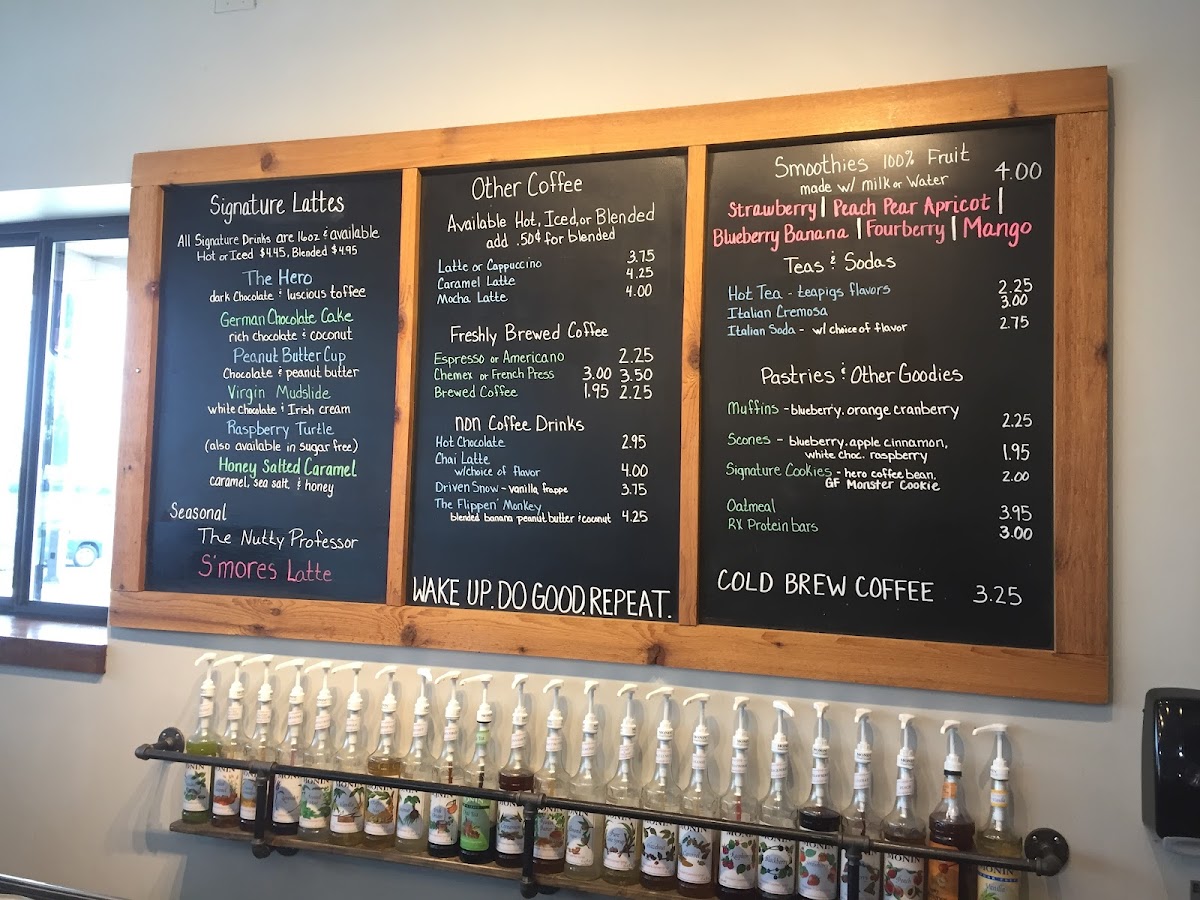 Signature Lattes
All Signature Drinks are 16oz & available
Hot or Iced $4.45, Blended $4.95
The Hero
dark Chocolate & luscious toffee
German Chocolate Cake
rich chocolate & coconut
Peanut Butter Cup
Chocolate & peanut butter
Virgin Mudslide
white chocolate & Irish cream
Raspberry Turtle
(also available in sugar free)
Honey Salted Caramel
caramel, sea salt, & honey
Seasonal
The Nutty Professor
S'mores Latte
Other Coffee
Available Hot, Iced, or Blended
add .50¢ for blended
Latte or Cappuccino 3.75
Caramel Latte 4.25
Mocha Latte 4.00
Freshly Brewed Coffee
Espresso or Americano 2.25
Chemex or French Press 3.00 3.50
Brewed Coffee 1.95 2.25
non Coffee Drinks
Hot Chocolate 2.95
Chai Latte
w/choice of flavor 4.00
Driven Snow - vanilla frappe 3.75
The Flippen' Monkey
blended banana peanut butter & coconut 4.25
WAKE UP. DO GOOD. REPEAT.
Smoothies 100% Fruit
made w/ milk or water 4.00
Strawberry | Peach Pear Apricot |
Blueberry Banana | Fourberry | Mango
Teas & Sodas
Hot Tea - teapigs flavors 2.25
Italian Cremosa 3.00
Italian Soda - w/ choice of flavor 2.75
Pastries & Other Goodies
Muffins - blueberry, orange cranberry 2.25
Scones - blueberry, apple cinnamon,
white choc. raspberry 1.95
Signature Cookies - hero coffee bean, 2.00
GF Monster Cookie
Oatmeal 3.95
RX Protein bars 3.00
COLD BREW COFFEE 3.25